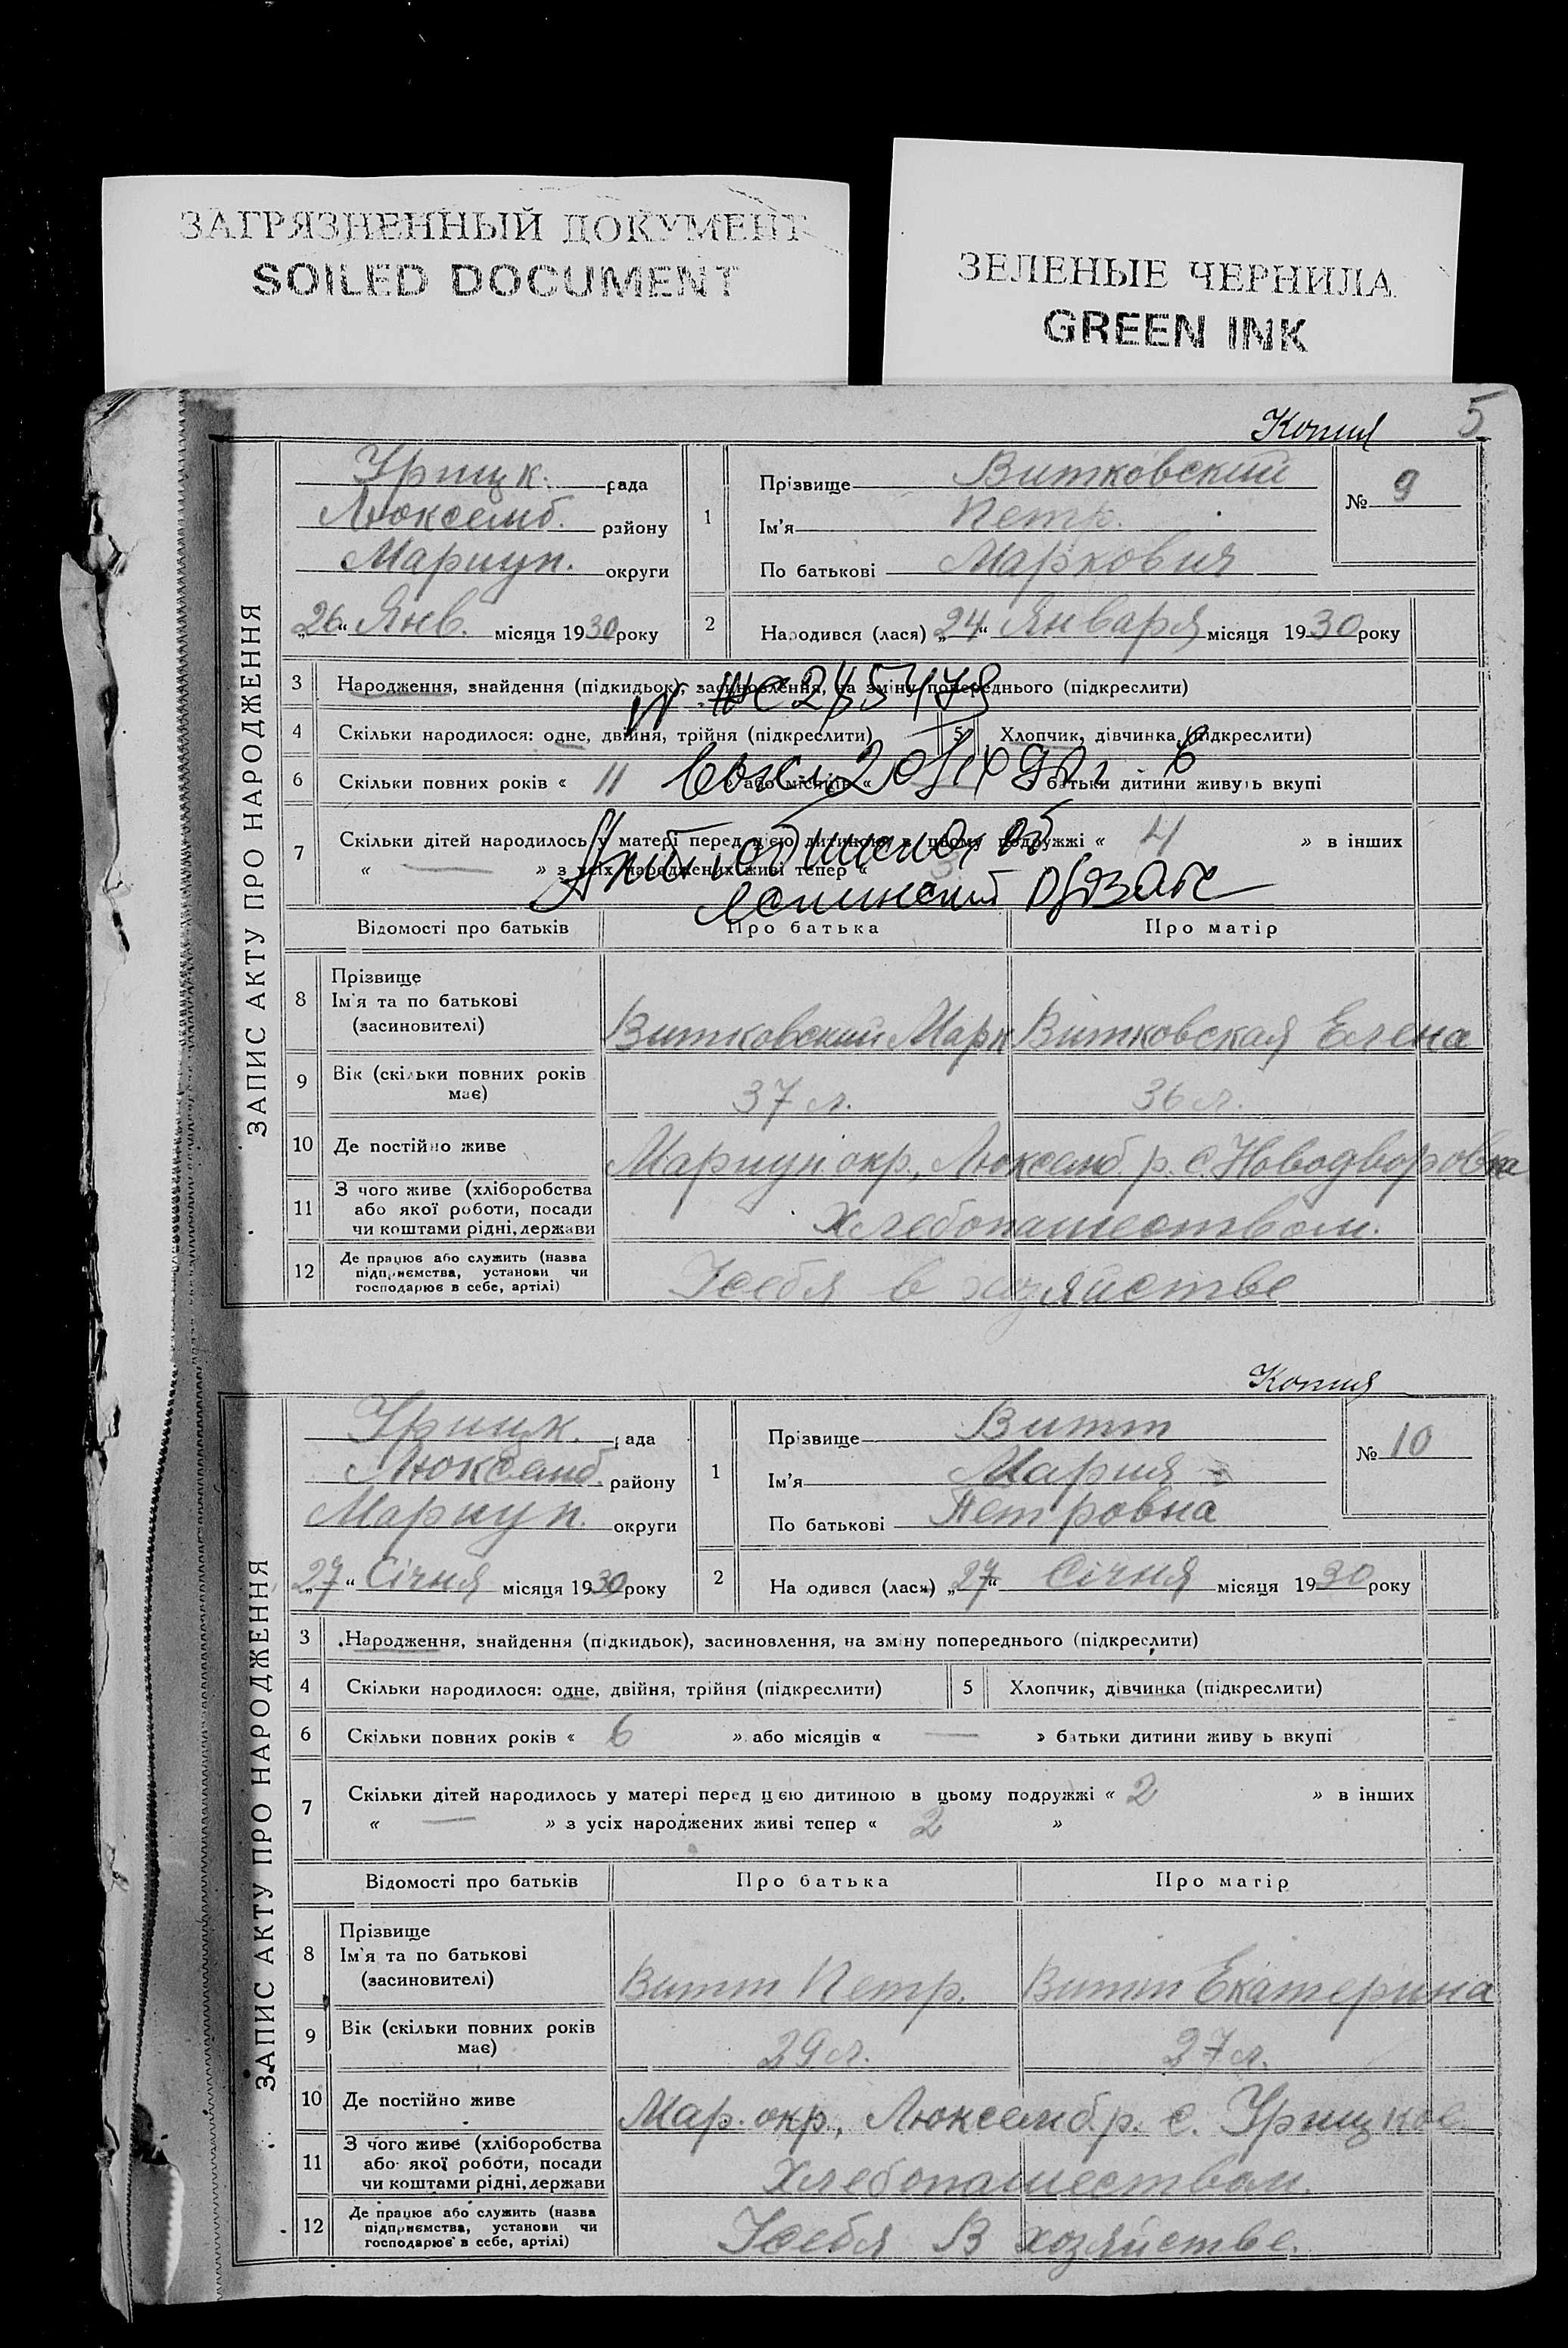 ЗАГРЯЗНЕННЫЙ ДОКУМЕНТ
SOILED DOCUMENT
ЗЕЛЕНЫЕ ЧЕРНИЛА
GREEN INK
Копия 5
ЗАПИС АКТУ ПРО НАРОДЖЕННЯ
Урицк. рада
Люксемб. району
Мариуп. округи
„26“ Янв. місяця 1930 року
1 Прізвище Витковский
Ім'я Петр.
По батькові Маркович
№ 9
2 Народився (лася) „24“ Января місяця 1930 року
3 Народження, знайдення (підкидьок), засиновлення, на зміну попереднього (підкреслити)
4 Скільки народилося: одне, двійня, трійня (підкреслити) 5 Хлопчик, дівчинка (підкреслити)
6 Скільки повних років « 11 » або місяців « — » батьки дитини живуть вкупі
7 Скільки дітей народилось у матері перед цією дитиною в цьому подружжі « 4 » в інших
« — » з усіх народжених живі тепер «
Відомості про батьків Про батька Про матір
8 Прізвище
Ім'я та по батькові
(засиновителі)
Витковский Марк Витковская Елена
9 Вік (скільки повних років
має)
37 л. 36 л.
10 Де постійно живе Мариуп окр., Люксемб. р. с. Новодворовка
11 З чого живе (хліборобства
або якої роботи, посади
чи коштами рідні, держави
Хлебопашеством.
12 Де працює або служить (назва
підприємства, установи чи
господарює в себе, артілі)
Усебя в хозяйстве
Копия
ЗАПИС АКТУ ПРО НАРОДЖЕННЯ
Урицк. рада
Люксемб. району
Мариуп. округи
„27“ Січня місяця 1930 року
1 Прізвище Витт
Ім'я Мария
По батькові Петровна
№ 10
2 На одився (лася) „27“ Січня місяця 1930 року
3 Народження, знайдення (підкидьок), засиновлення, на зміну попереднього (підкреслити)
4 Скільки народилося: одне, двійня, трійня (підкреслити) 5 Хлопчик, дівчинка (підкреслити)
6 Скільки повних років « 6 » або місяців « — » батьки дитини живу ь вкупі
7 Скільки дітей народилось у матері перед цією дитиною в цьому подружжі « 2 » в інших
« — » з усіх народжених живі тепер « 2 »
Відомості про батьків Про батька Про матір
8 Прізвище
Ім'я та по батькові
(засиновителі)
Витт Петр. Витт Екатерина
9 Вік (скільки повних років
має)
29 л. 27 л.
10 Де постійно живе Мар. окр., Люксемб. р. с. Урицкое
11 З чого живе (хліборобства
або якої роботи, посади
чи коштами рідні, держави
Хлебопашеством.
12 Де працює або служить (назва
підприємства, установи чи
господарює в себе, артілі)
Усебя В хозяйстве.